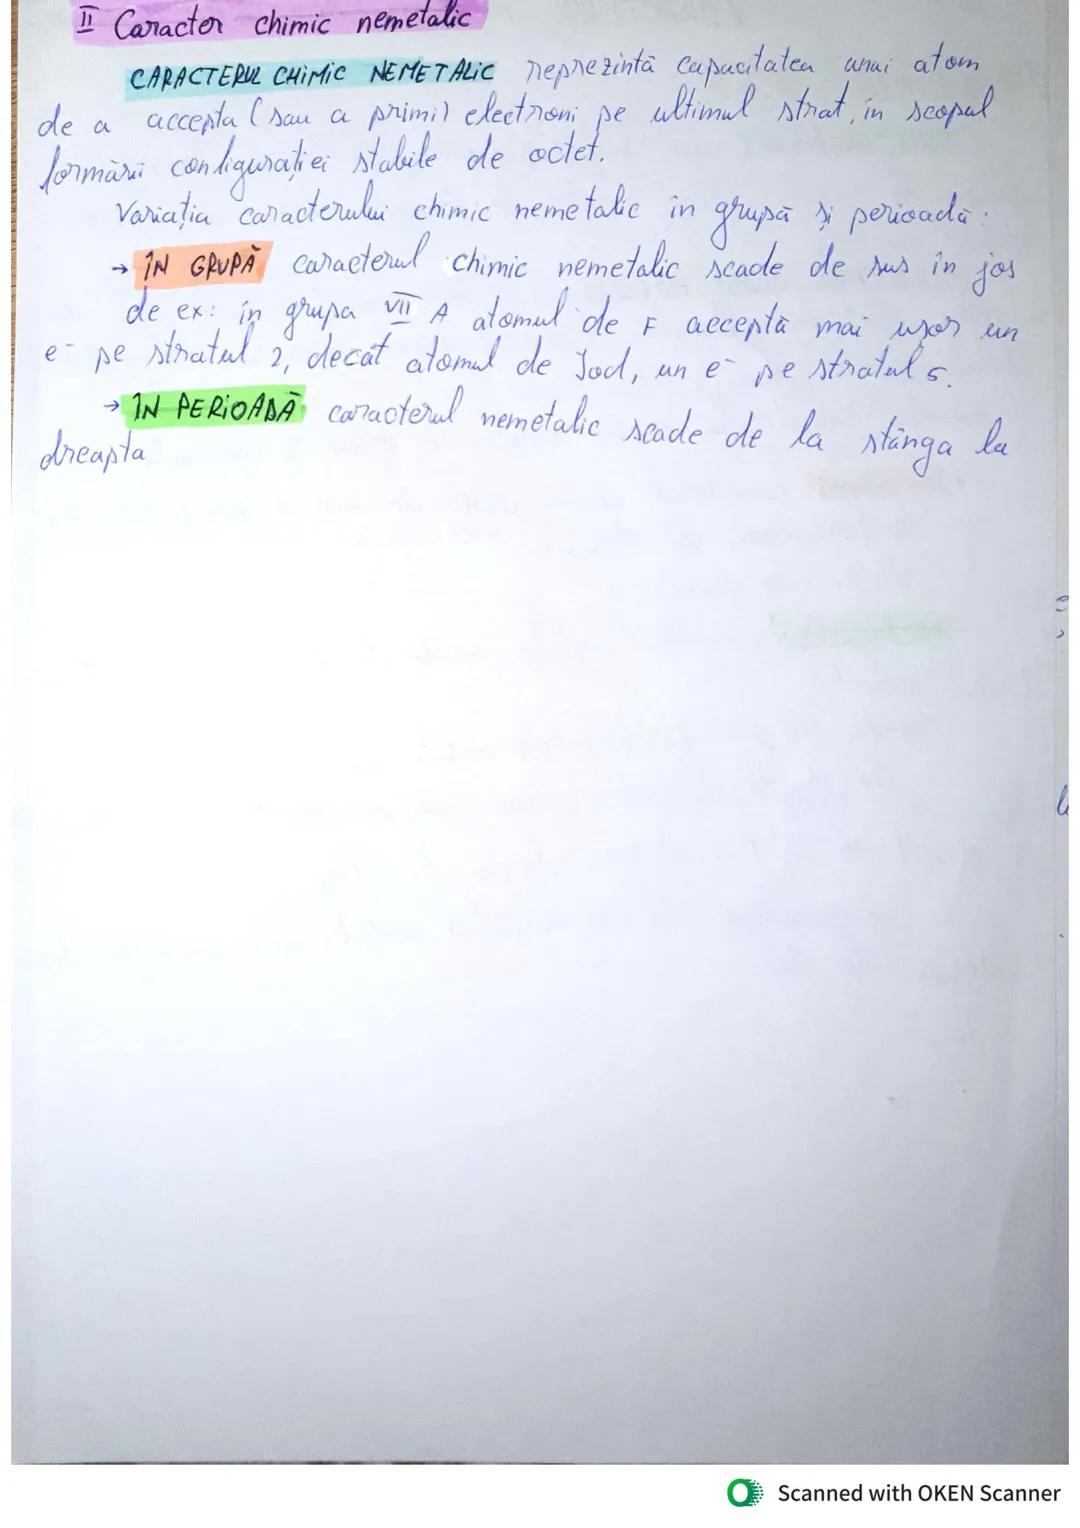 II Caracter chimic nemetalic
CARACTERUL CHIMIC NEMETALIC reprezintă capacitatea unui atom
de a accepta (sau a primi) electroni pe ultimul strat, în scopul
formării configurației stabile de octet.
Variația caracterului chimic nemetalic în grupă și perioadă:
→ ÎN GRUPĂ caracterul chimic nemetalic scade de sus în jos
de ex: în grupa VII A atomul de F acceptă mai ușor un
e⁻ pe stratul 2, decât atomul de Iod, un e⁻ pe stratul 5.
→ ÎN PERIOADĂ caracterul nemetalic scade de la stânga la
dreapta
Scanned with OKEN Scanner